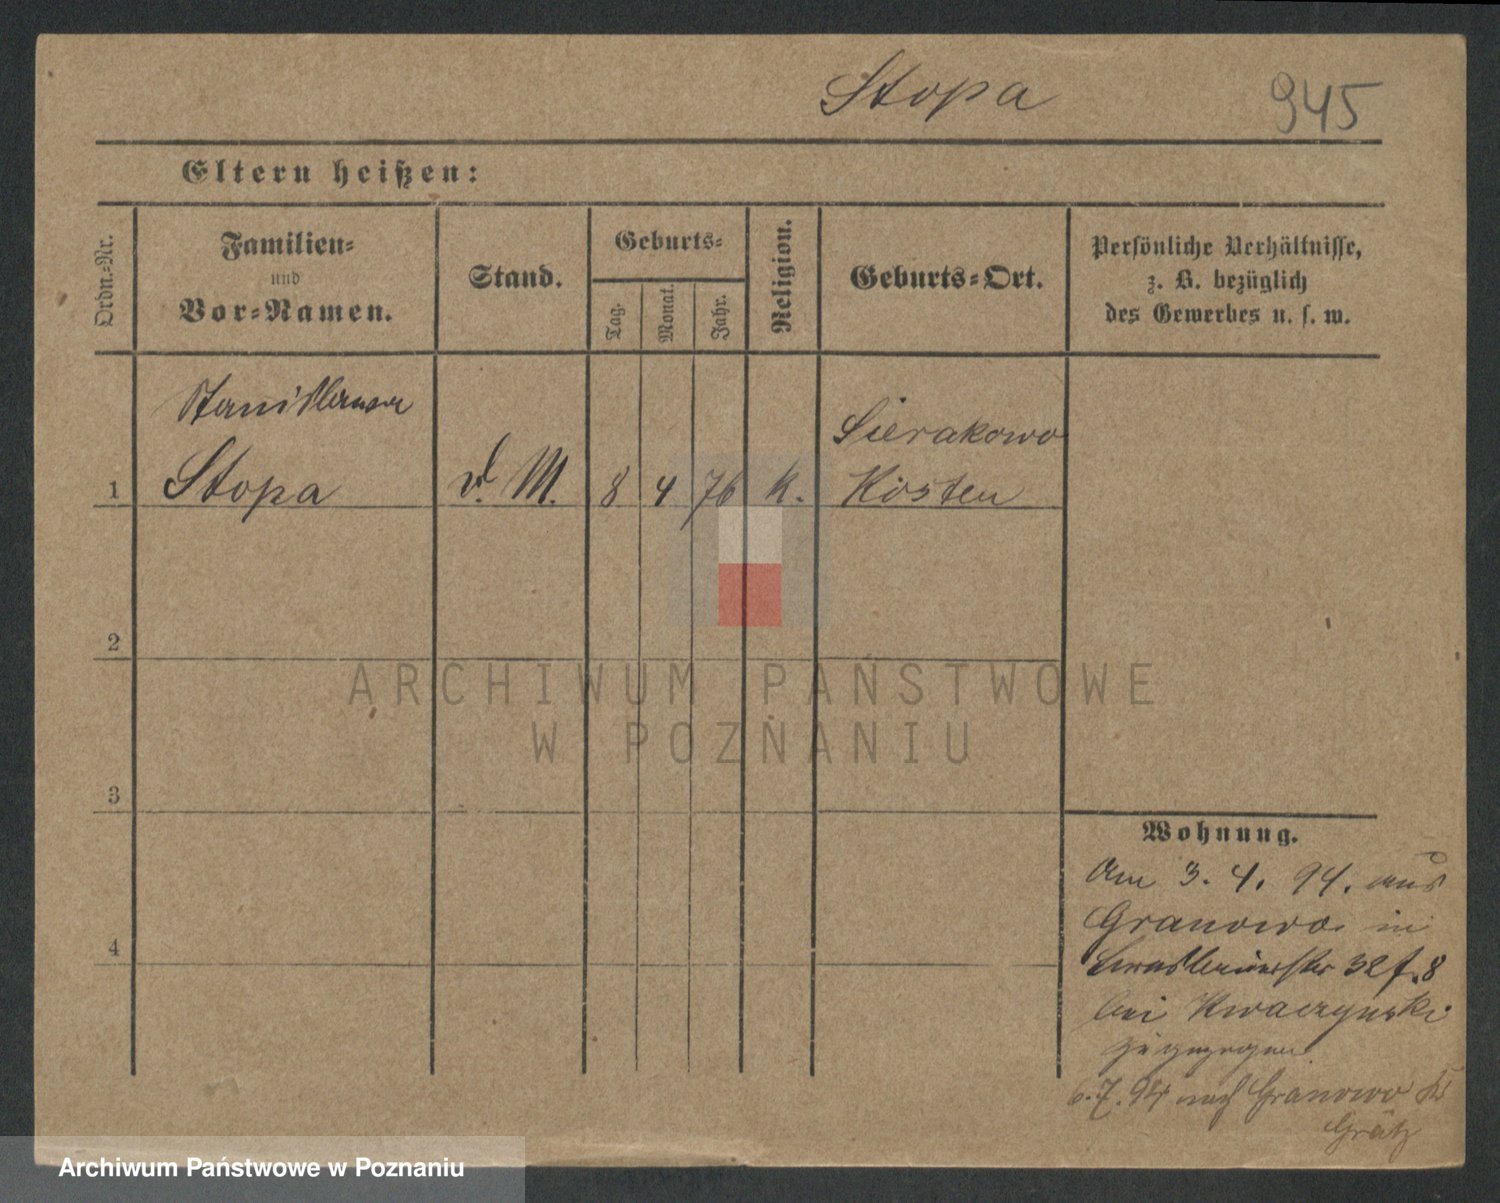 Stopa 945
Eltern heißen:
Ordn.-Nr.
Familien-
und
Vor-Namen.
Stand.
Geburts-
Tag.
Monat.
Jahr.
Religion.
Geburts-Ort.
Persönliche Verhältnisse,
z. B. bezüglich
des Gewerbes u. s. w.
Stanislawa
Sierakowo
1 Stopa d. M. 8 4 76 k. Kosten
2
ARCHIWUM PAŃSTWOWE
W POZNANIU
3
Wohnung.
Am 3. 4. 94. aus
Granowo in
4
32 f. 8
bei Kwaczynski
zugezogen.
6.7.94 nach Granowo Kr
Grätz
Archiwum Państwowe w Poznaniu